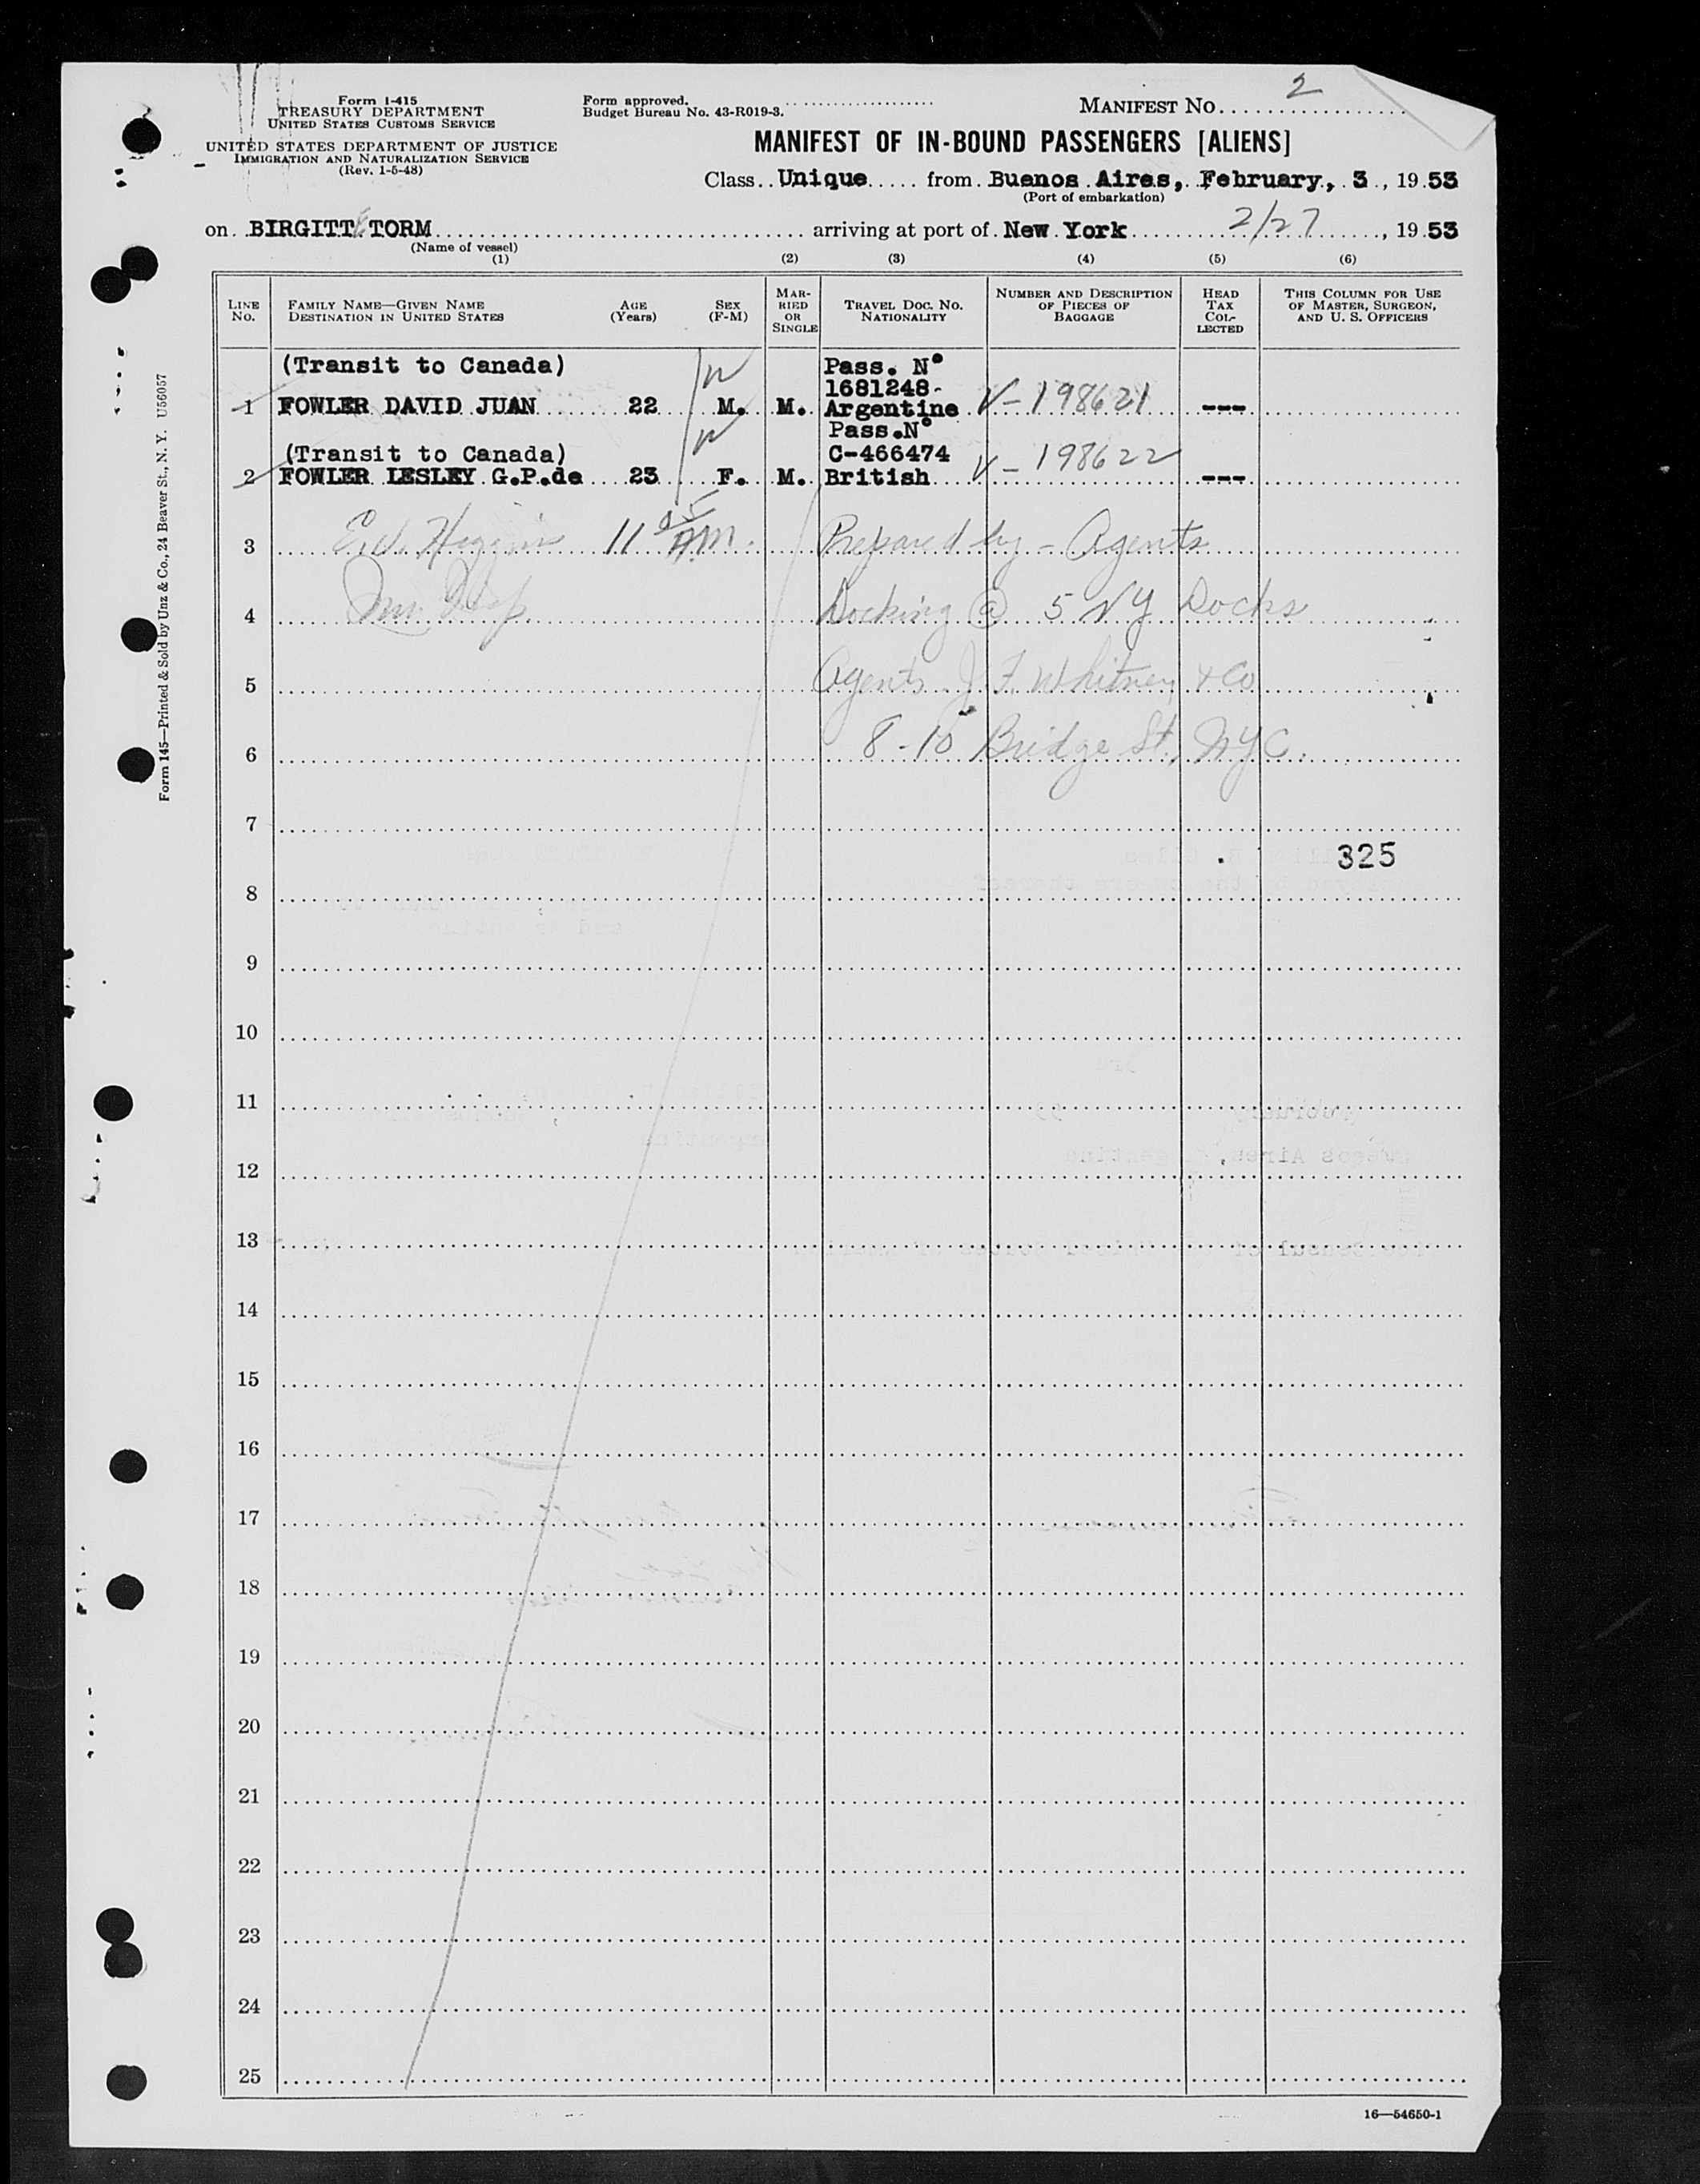 Form I-415
TREASURY DEPARTMENT
UNITED STATES CUSTOMS SERVICE
UNITED STATES DEPARTMENT OF JUSTICE
IMMIGRATION AND NATURALIZATION SERVICE
(Rev. 1-5-48)
Form approved.
Budget Bureau No. 43-R019-3.
MANIFEST NO. 2
MANIFEST OF IN-BOUND PASSENGERS [ALIENS]
Class Unique from Buenos Aires, February, 3, 1953
(Port of embarkation)
on BIRGITTE TORM arriving at port of New York 2/27, 1953
(Name of vessel)
(1) (2) (3) (4) (5) (6)
LINE NO.
FAMILY NAME—GIVEN NAME
DESTINATION IN UNITED STATES
AGE (Years)
SEX (F-M)
MARRIED OR SINGLE
TRAVEL DOC. NO.
NATIONALITY
NUMBER AND DESCRIPTION OF PIECES OF BAGGAGE
HEAD TAX COLLECTED
THIS COLUMN FOR USE OF MASTER, SURGEON, AND U. S. OFFICERS
(Transit to Canada) Pass. Nº
1681248-
1 FOWLER DAVID JUAN 22 M. M. Argentine V-198621 ---
Pass.Nº
(Transit to Canada) C-466474
2 FOWLER LESLEY G.P.de 23 F. M. British V-198622 ---
3 11 AM. Prepared by - Agents
4 Docking @ 5 NY Docks
5 Agents J. F. Whitney & Co
6 8-10 Bridge St., NYC.
7
325
8
9
10
11
12
13
14
15
16
17
18
19
20
21
22
23
24
25
16—54650-1
Form 145—Printed & Sold by Unz & Co., 24 Beaver St., N. Y. U56057